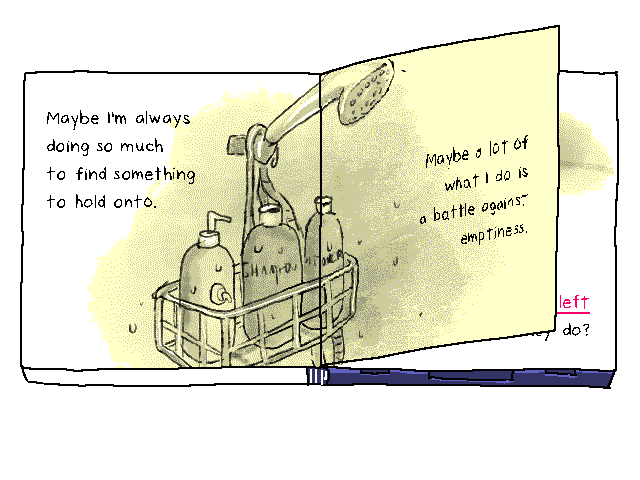 Maybe I'm always
doing so much
to find something
to hold onto.
SHAMPOO
Maybe a lot of
what I do is
a battle against
emptiness.
left
do?